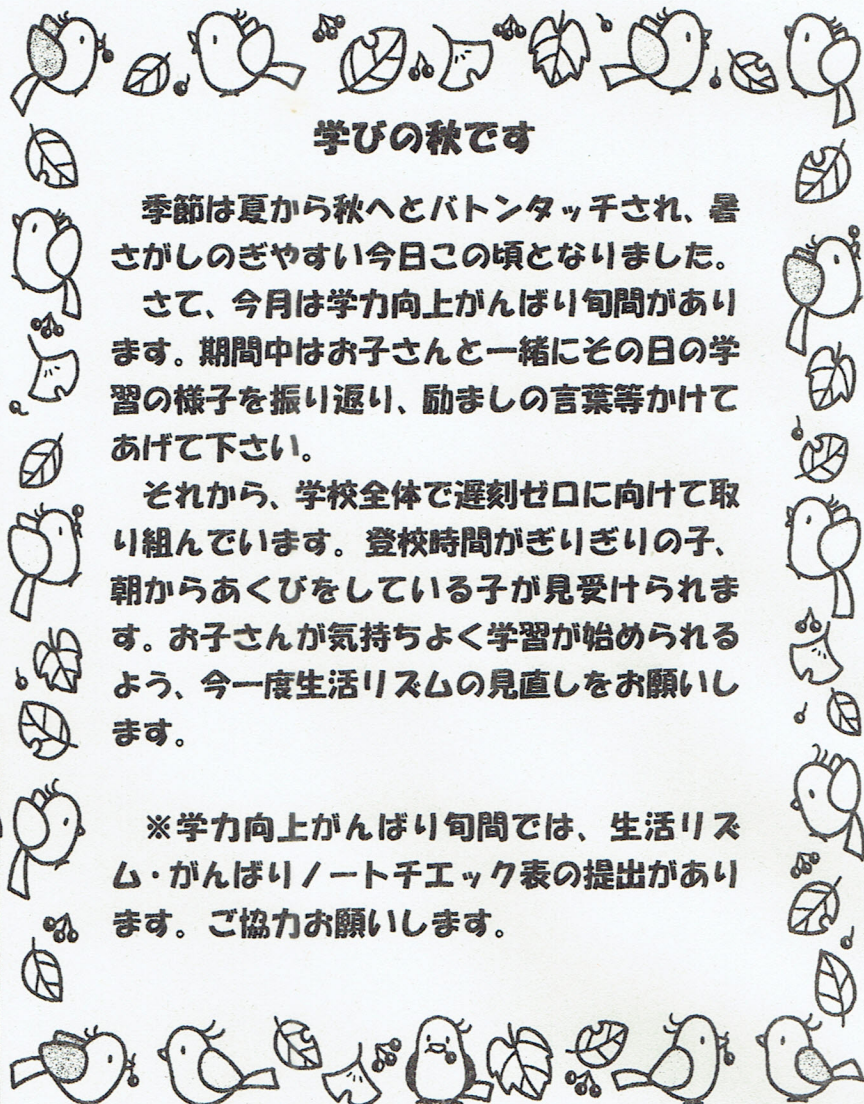 学びの秋です
季節は夏から秋へとバトンタッチされ、暑
さがしのぎやすい今日この頃となりました。
さて、今月は学力向上がんばり旬間があり
ます。期間中はお子さんと一緒にその日の学
習の様子を振り返り、励ましの言葉等かけて
あげて下さい。
それから、学校全体で遅刻ゼロに向けて取
り組んでいます。登校時間がぎりぎりの子、
朝からあくびをしている子が見受けられま
す。お子さんが気持ちよく学習が始められる
よう、今一度生活リズムの見直しをお願いし
ます。
※学力向上がんばり旬間では、生活リズ
ム・がんばりノートチエック表の提出があり
ます。ご協力お願いします。